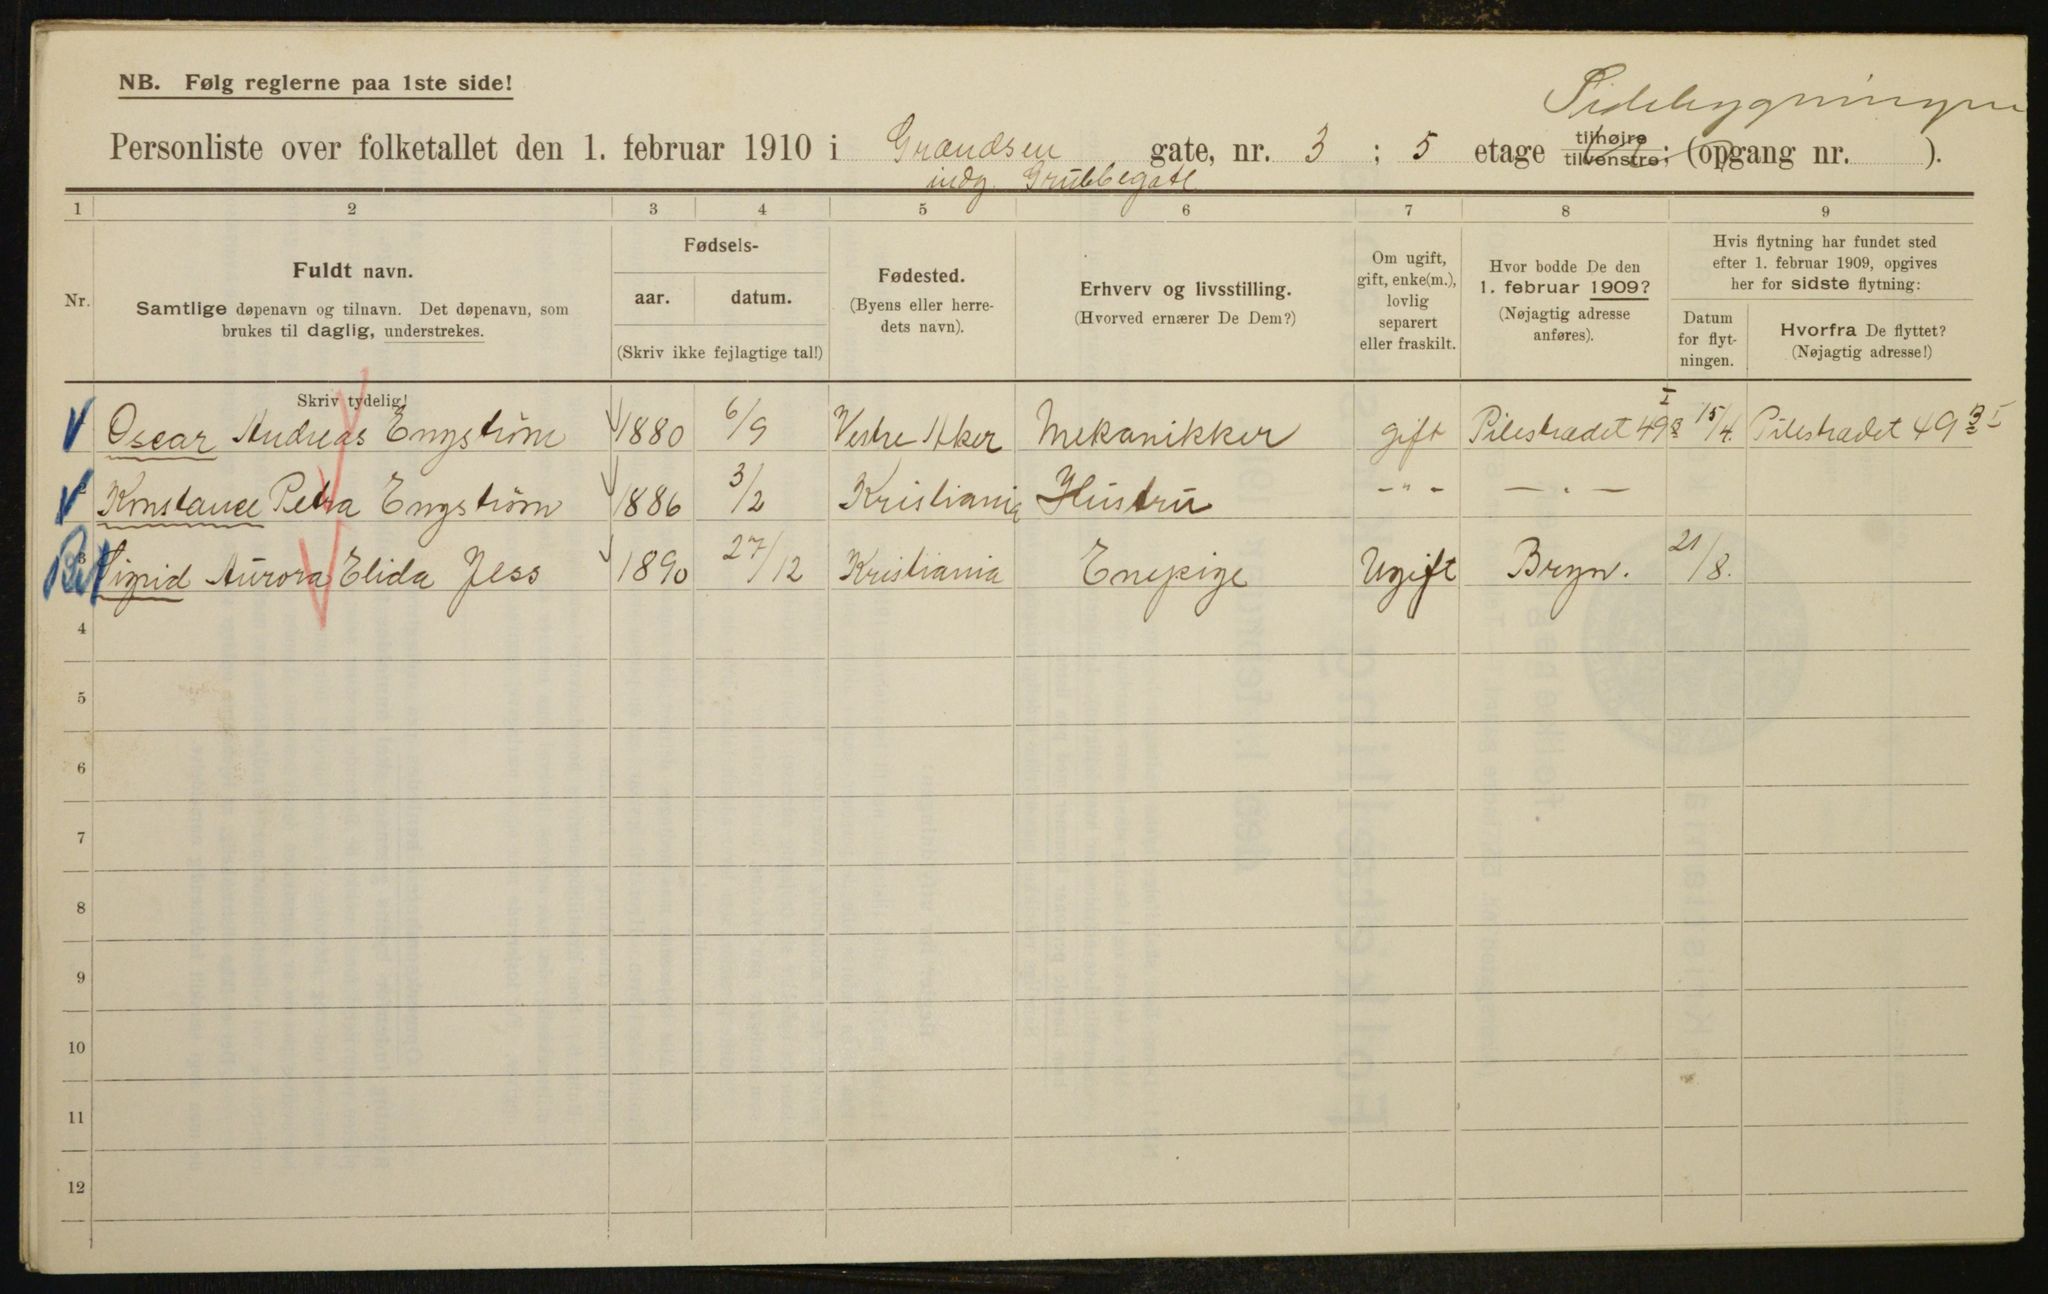 NB. Følg reglerne paa 1ste side!
Sidebygningen
Personliste over folketallet den 1. februar 1910 i Grændsen gate, nr. 3 ; 5 etage tilhøire tilvenstre; (opgang nr. ).
indg. Grubbegate
1 2 3 4 5 6 7 8 9
Nr.
Fuldt navn.
Samtlige døpenavn og tilnavn. Det døpenavn, som
brukes til daglig, understrekes.
Fødsels-
aar. datum.
(Skriv ikke fejlagtige tal!)
Fødested.
(Byens eller herre-
dets navn).
Erhverv og livsstilling.
(Hvorved ernærer De Dem?)
Om ugift,
gift, enke(m.),
lovlig
separert
eller fraskilt.
Hvor bodde De den
1. februar 1909?
(Nøjagtig adresse
anføres).
Hvis flytning har fundet sted
efter 1. februar 1909, opgives
her for sidste flytning:
Datum
for flyt-
ningen.
Hvorfra De flyttet?
(Nøjagtig adresse!)
Skriv tydelig!
Oscar Andreas Engström 1880 6/9 Vestre Aker Mekanikker gift Pilestrædet 49 B I 15/4. Pilestrædet 49 B I
Konstance Petra Engström 1886 3/2 Kristiania Hustru - " - - " -
3 Sigrid Aurora Elida Jess 1890 27/12 Kristiania Enepige Ugift Bryn. 21/8.
4
5
6
7
8
9
10
11
12